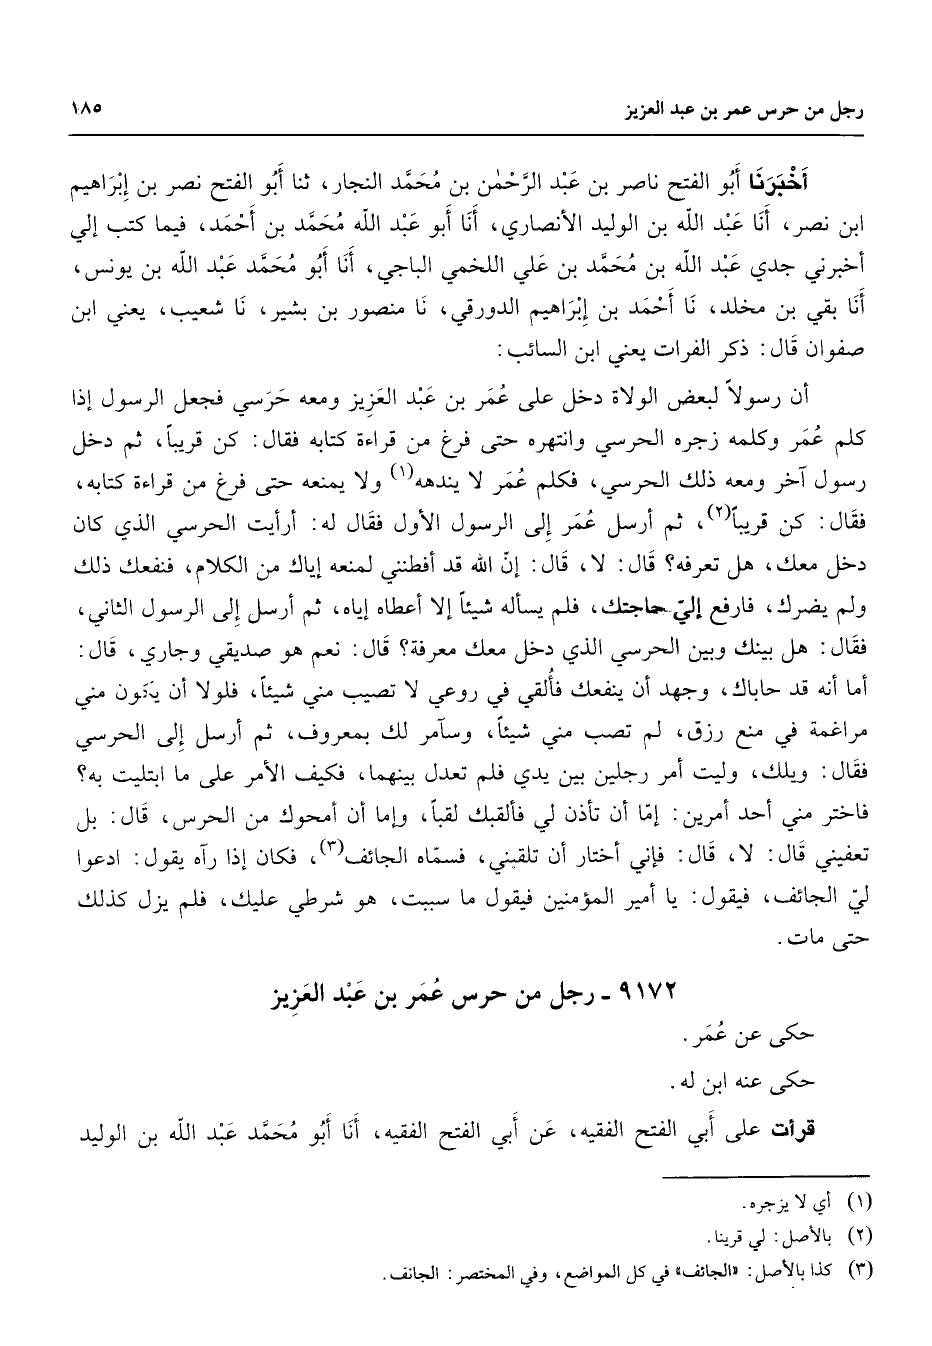 رجل من حرس عمر بن عبد العزيز ١٨٥
أَخْبَرَنَا أَبُو الفتح ناصر بن عَبْد الرَّحْمٰن بن مُحَمَّد النجار، ثنا أَبُو الفتح نصر بن إِبْرَاهيم
ابن نصر، أَنَا عَبْد اللّه بن الوليد الأنصاري، أَنَا أَبو عَبْد اللّه مُحَمَّد بن أَحْمَد، فيما كتب إلي
أخبرني جدي عَبْد اللّه بن مُحَمَّد بن عَلي اللخمي الباجي، أَنَا أَبُو مُحَمَّد عَبْد اللّه بن يونس،
أَنَا بقي بن مخلد، نَا أَحْمَد بن إِبْرَاهيم الدورقي، نَا منصور بن بشير، نَا شعيب، يعني ابن
صفوان قَال: ذكر الفرات يعني ابن السائب:
أن رسولاً لبعض الولاة دخل على عُمَر بن عَبْد العَزِيز ومعه حَرَسي فجعل الرسول إذا
كلم عُمَر وكلمه زجره الحرسي وانتهره حتى فرغ من قراءة كتابه فقال: كن قريباً، ثم دخل
رسول آخر ومعه ذلك الحرسي، فكلم عُمَر لا يندهه(١) ولا يمنعه حتى فرغ من قراءة كتابه،
فقال: كن قريباً(٢)، ثم أرسل عُمَر إلى الرسول الأول فقَال له: أرأيت الحرسي الذي كان
دخل معك، هل تعرفه؟ قَال: لا، قَال: إنّ الله قد أفطنني لمنعه إياك من الكلام، فنفعك ذلك
ولم يضرك، فارفع إليّ حاجتك، فلم يسأله شيئاً إلا أعطاه إياه، ثم أرسل إلى الرسول الثاني،
فقَال: هل بينك وبين الحرسي الذي دخل معك معرفة؟ قَال: نعم هو صديقي وجاري، قَال:
أما أنه قد حاباك، وجهد أن ينفعك فأُلقي في روعي لا تصيب مني شيئاً، فلولا أن يكون مني
مراغمة في منع رزق، لم تصب مني شيئاً، وسآمر لك بمعروف، ثم أرسل إلى الحرسي
فقَال: ويلك، وليت أمر رجلين بين يدي فلم تعدل بينهما، فكيف الأمر على ما ابتليت به؟
فاختر مني أحد أمرين: إمّا أن تأذن لي فألقبك لقباً، وإما أن أمحوك من الحرس، قَال: بل
تعفيني قَال: لا، قَال: فإني أختار أن تلقبني، فسمّاه الجائف(٣)، فكان إذا رآه يقول: ادعوا
ليّ الجائف، فيقول: يا أمير المؤمنين فيقول ما سببت، هو شرطي عليك، فلم يزل كذلك
حتى مات.
٩١٧٢ ـ رجل من حرس عُمَر بن عَبْد العَزِيز
حكى عن عُمَر.
حكى عنه ابن له.
قرأت على أَبي الفتح الفقيه، عَن أَبي الفتح الفقيه، أَنَا أَبُو مُحَمَّد عَبْد اللّه بن الوليد
(١) أي لا يزجره.
(٢) بالأصل: لي قرينا.
(٣) كذا بالأصل: «الجائف» في كل المواضع، وفي المختصر: الجانف.